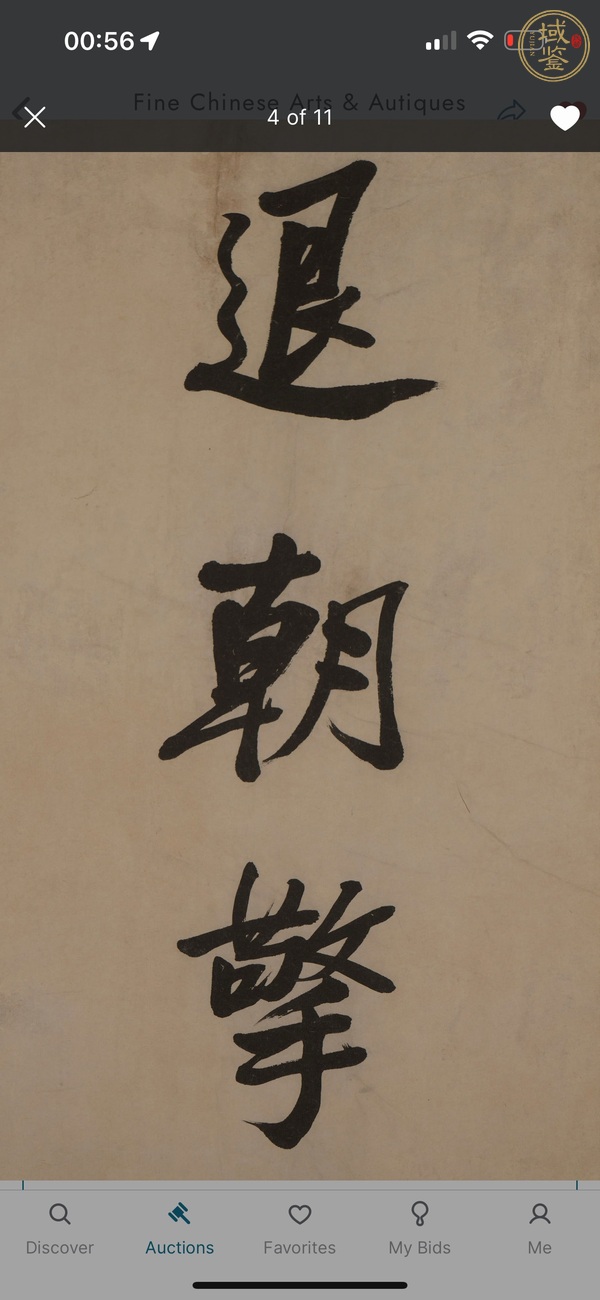 00:56
域鉴
Fine Chinese Arts & Autiques
4 of 11
退
朝
擎
Discover
Auctions
Favorites
My Bids
Me